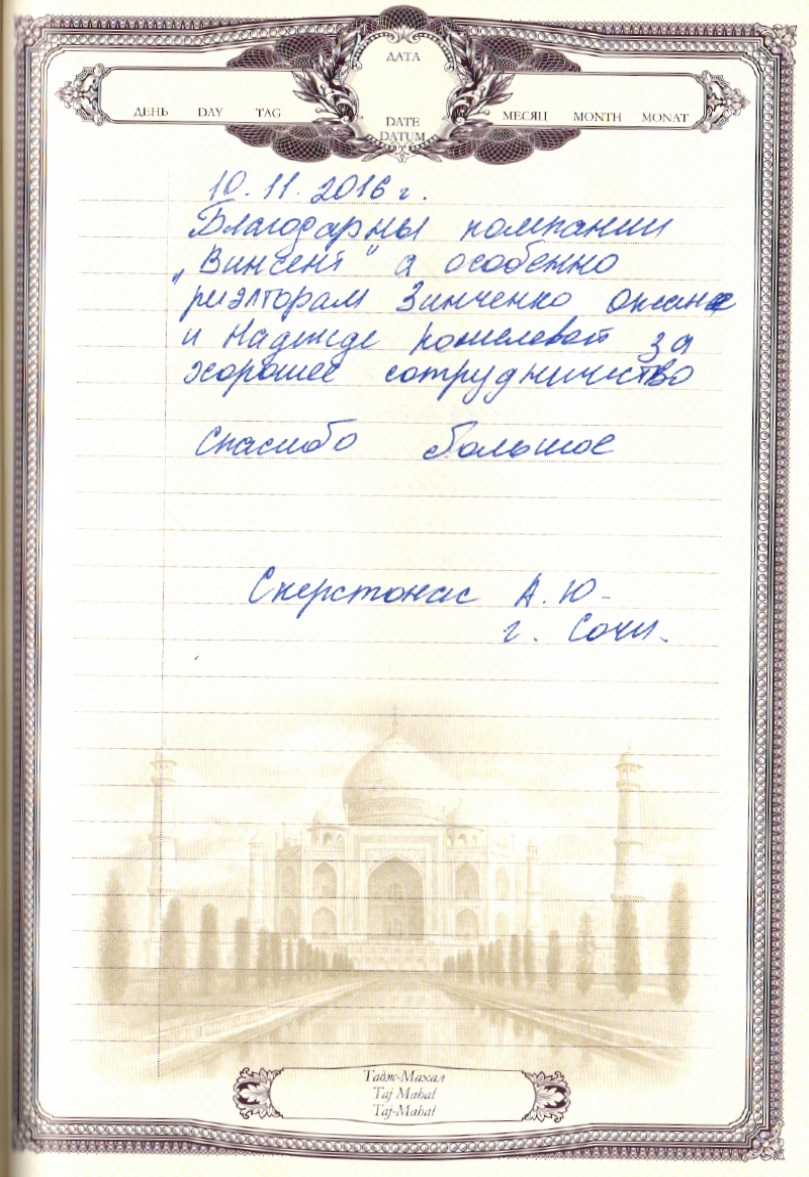 ДАТА
ДЕНЬ DAY TAG
DATE
DATUM
МЕСЯЦ MONTH MONAT
10.11.2016 г.
Благодарны компании
„Винсент" а особенно
риэлторам Зинченко Оксане
и Надежде Кошелевой за
хорошее сотрудничество
Спасибо большое
Скерстонас А.Ю-
г. Сочи.
Тадж-Махал
Taj Mahal
Taj-Mahal